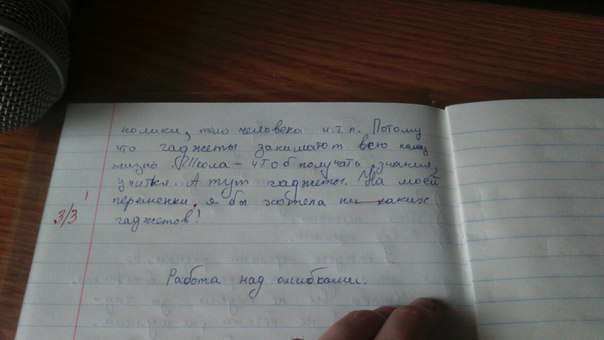 нолики, тело человека и.т.п. Потому
что гаджеты занимают всю нашу
жизнь. Школа – чтоб получать знания,
учиться. А тут гаджеты. На моей
переменки, я бы хотела ни каких
гаджетов!
3/3
Работа над ошибками.